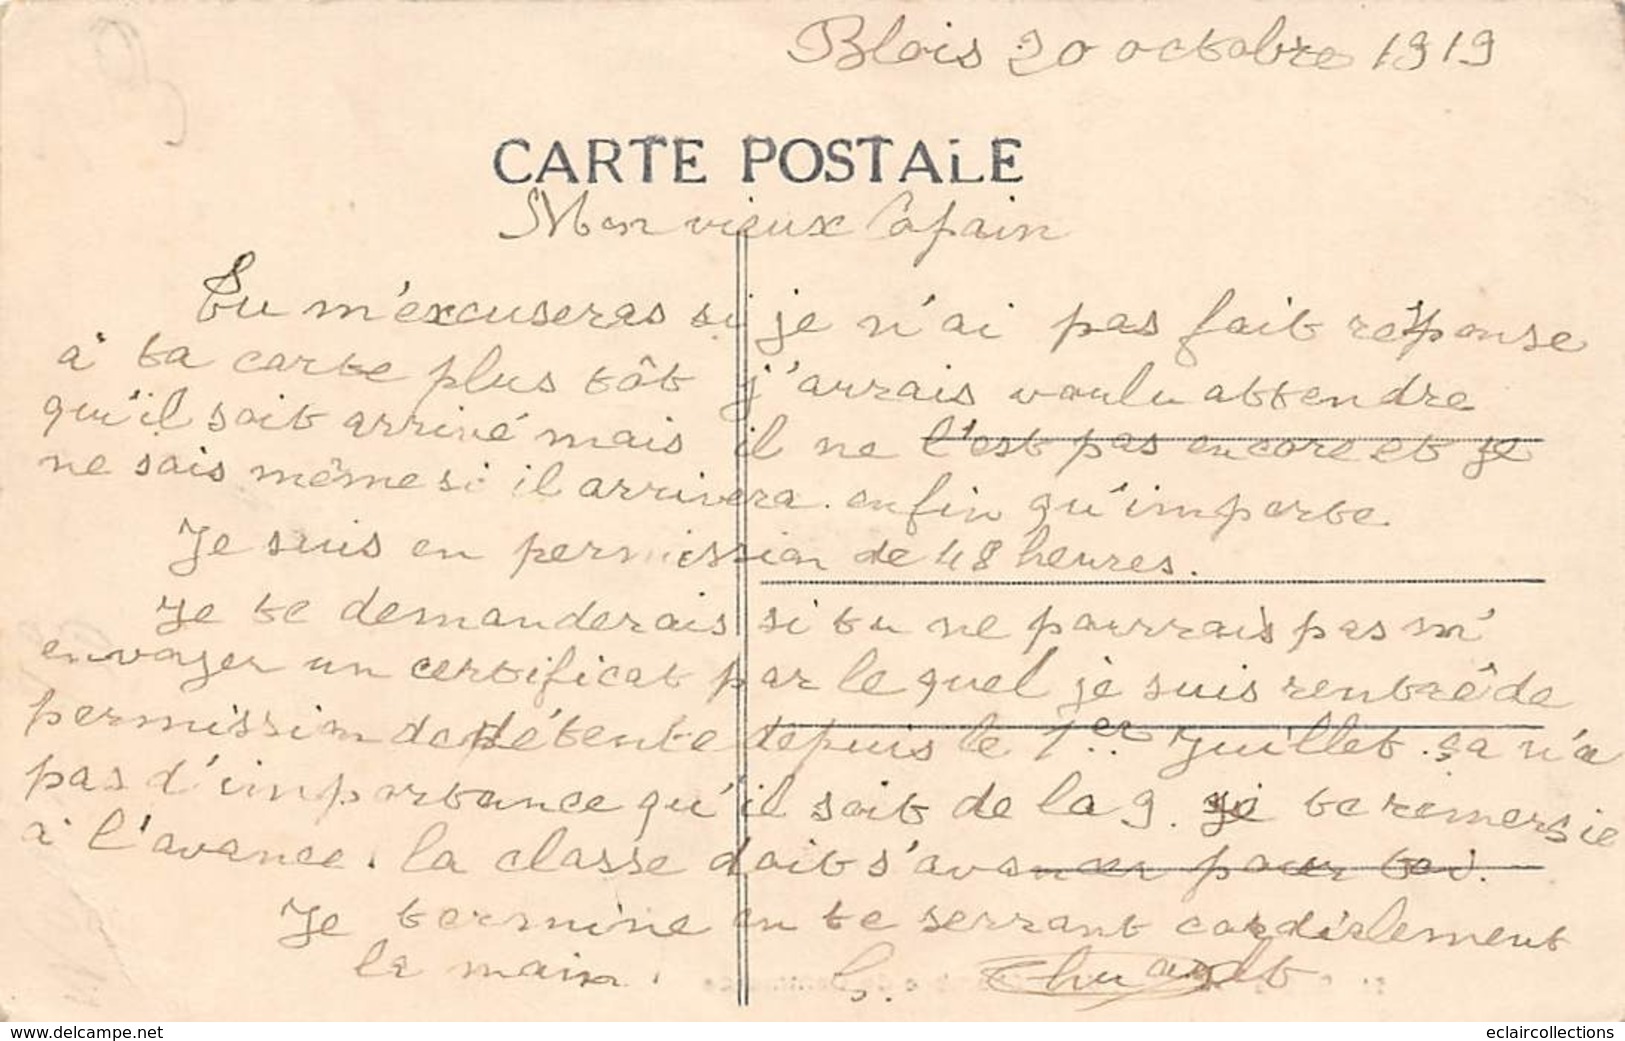 Blois 20 octobre 1919
CARTE POSTALE
Mon vieux Copain
Tu m'excuseras si je n'ai pas fait réponse
à ta carte plus tôt j'aurais voulu attendre
qu'il soit arrivé mais il ne l'est pas encore et je
ne sais même si il arrivera. enfin qu'importe.
Je suis en permission de 48 heures.
Je te demanderais si tu ne pourrais pas m'
envoyer un certificat par le quel je suis rentrê de
permission de détente depuis le 1er Juillet. ça n'a
pas d'importance qu'il soit de la 9. Je te remersie
à l'avance. la classe doit s'avancer pour toi.
Je termine en te serrant cordialement
la main.
www.delcampe.net
eclaircollections